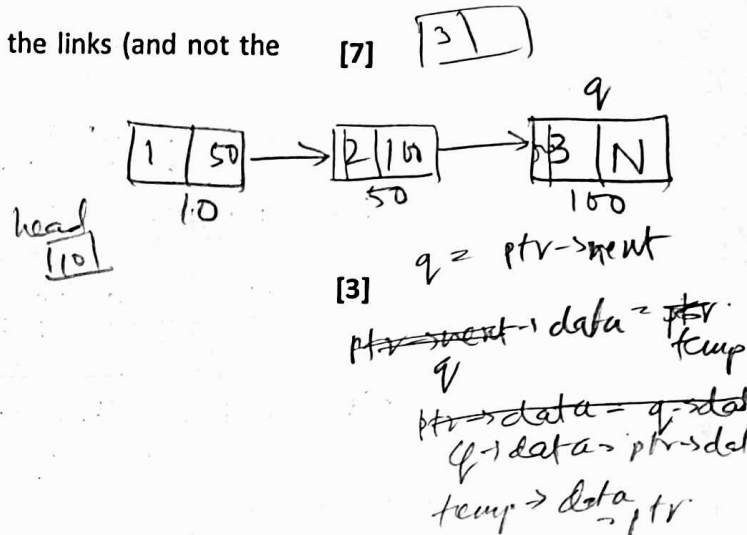 the links (and not the [7] 3
q
1 50 2 100 3 N
10 50 100
head
10
q = ptr->next
[3]
ptr->next -> data = ptr
q temp
ptr->data = q->dat
q->data = ptr->dat
temp -> data
= ptr